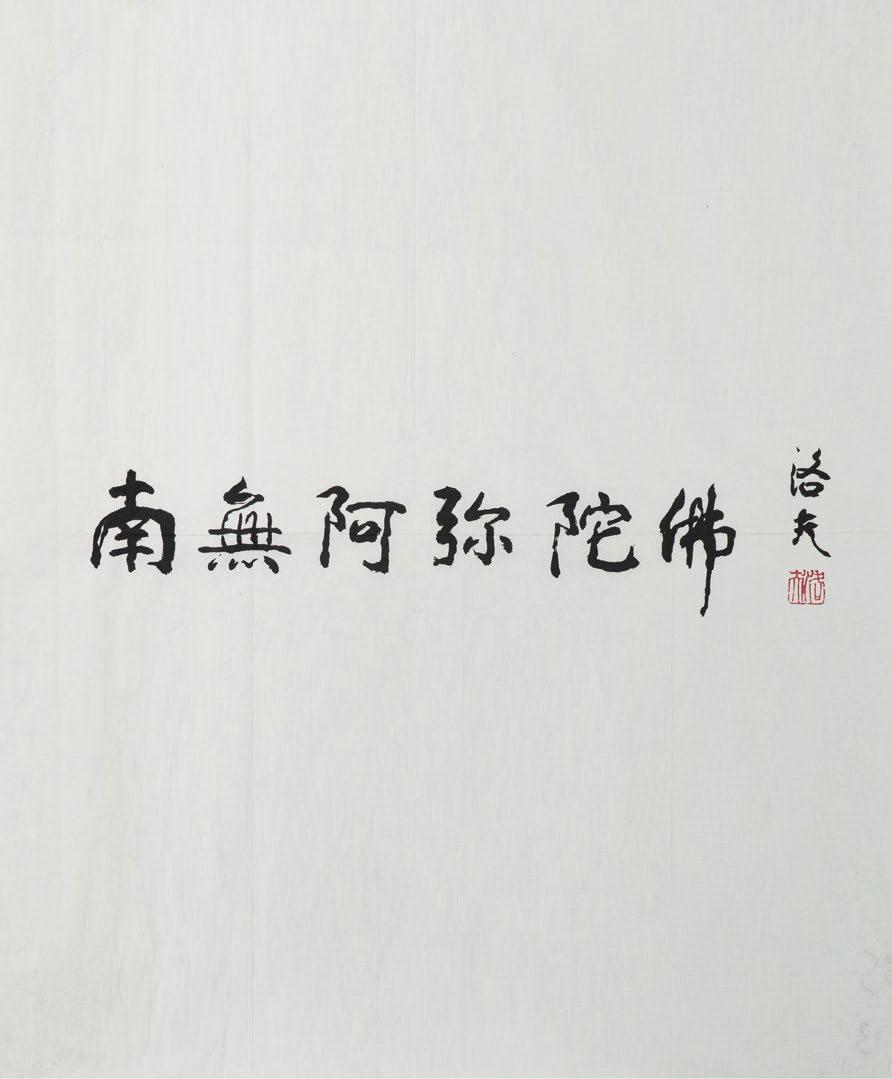 南無阿弥陀佛
洛夫